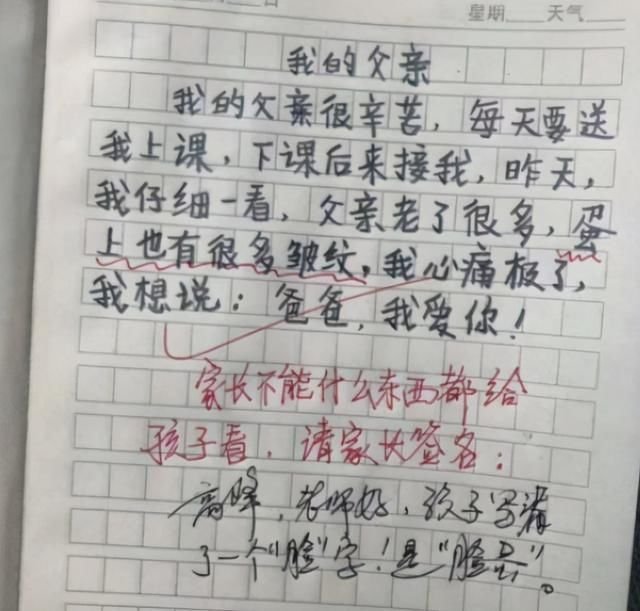 日
星期 天气
我的父亲
我的父亲很辛苦，每天要送
我上课，下课后来接我，昨天，
我仔细一看，父亲老了很多，蛋
上也有很多皱纹，我心痛极了，
我想说：爸爸，我爱你！
家长不能什么东西都给
孩子看，请家长签名：
高峰，老师好，孩子写漏
了一个“脸”字！是“脸蛋”。